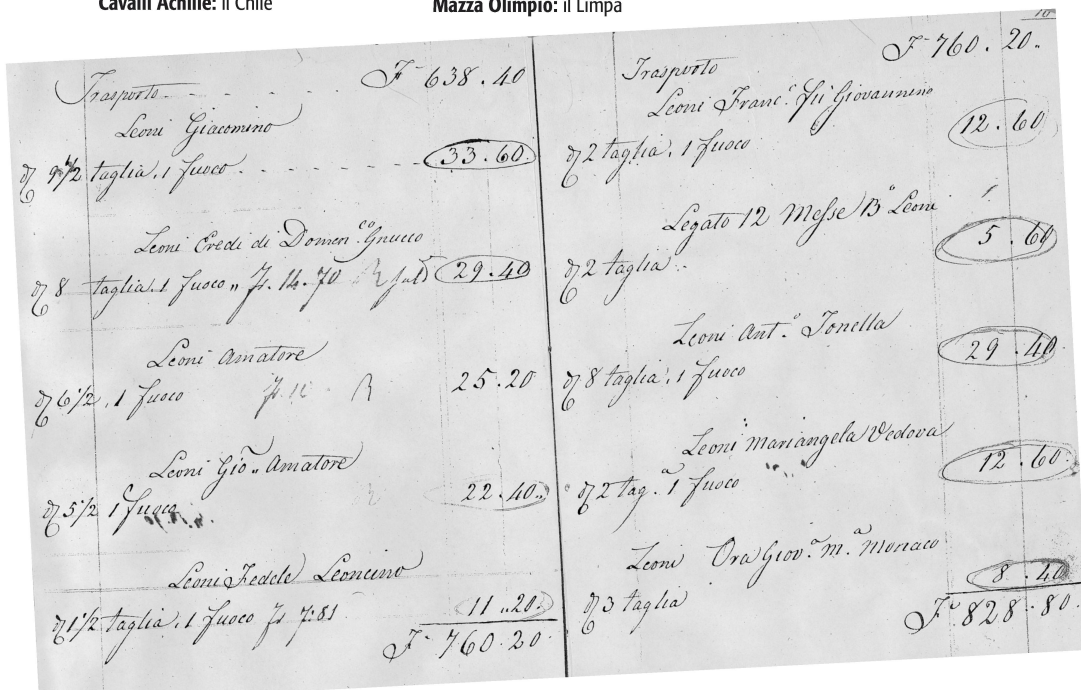 Cavalli Achille: il Chile
Mazza Olimpio: il Limpa
Trasporto F 638.40
Leoni Giacomino
9 1/2 taglia, 1 fuoco 33.60
Leoni Eredi di Domen.co Gnucco
8 taglia. 1 fuoco „ F. 14.70 29.40
Leoni Amatore
6 1/2, 1 fuoco 25.20
Leoni Gio. „ Amatore
5 1/2 1 fuoco 22.40
Leoni Fedele Leoncino
1 1/2 taglia, 1 fuoco F 7:81 11.20
F 760.20
10
Trasporto F 760.20
Leoni Franc.o fu Giovannino
2 taglia. 1 fuoco 12.60
Legato 12 Messe B.o Leoni
2 taglia 5.60
Leoni Ant.o Tonella
8 taglia, 1 fuoco 29.40
Leoni Mariangela Vedova
2 tag.a 1 fuoco 12.60
Leoni Ora Giov.a M.a Monaco
3 taglia 8.40
F 828.80